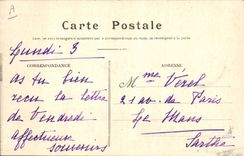 A
Carte Postale
Lundi 3
CORRESPONDANCE
ADRESSE
as tu bien
reçu la lettre
de Vendredi
affectueux
souvenirs
Mme Véret
21 av. de Paris
Le Mans
Sarthe